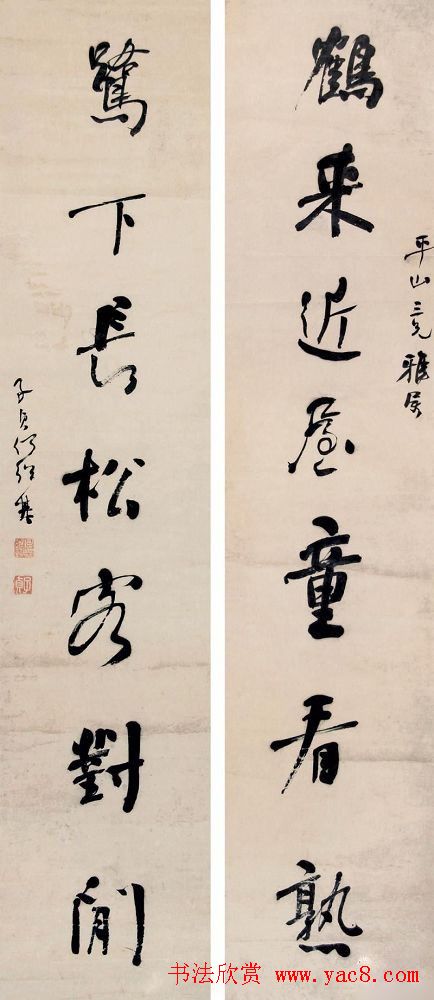 平山三兄雅属
鶴来近屋童看熟
鷺下長松客對閒
子貞何紹基
书法欣赏 www.yac8.com